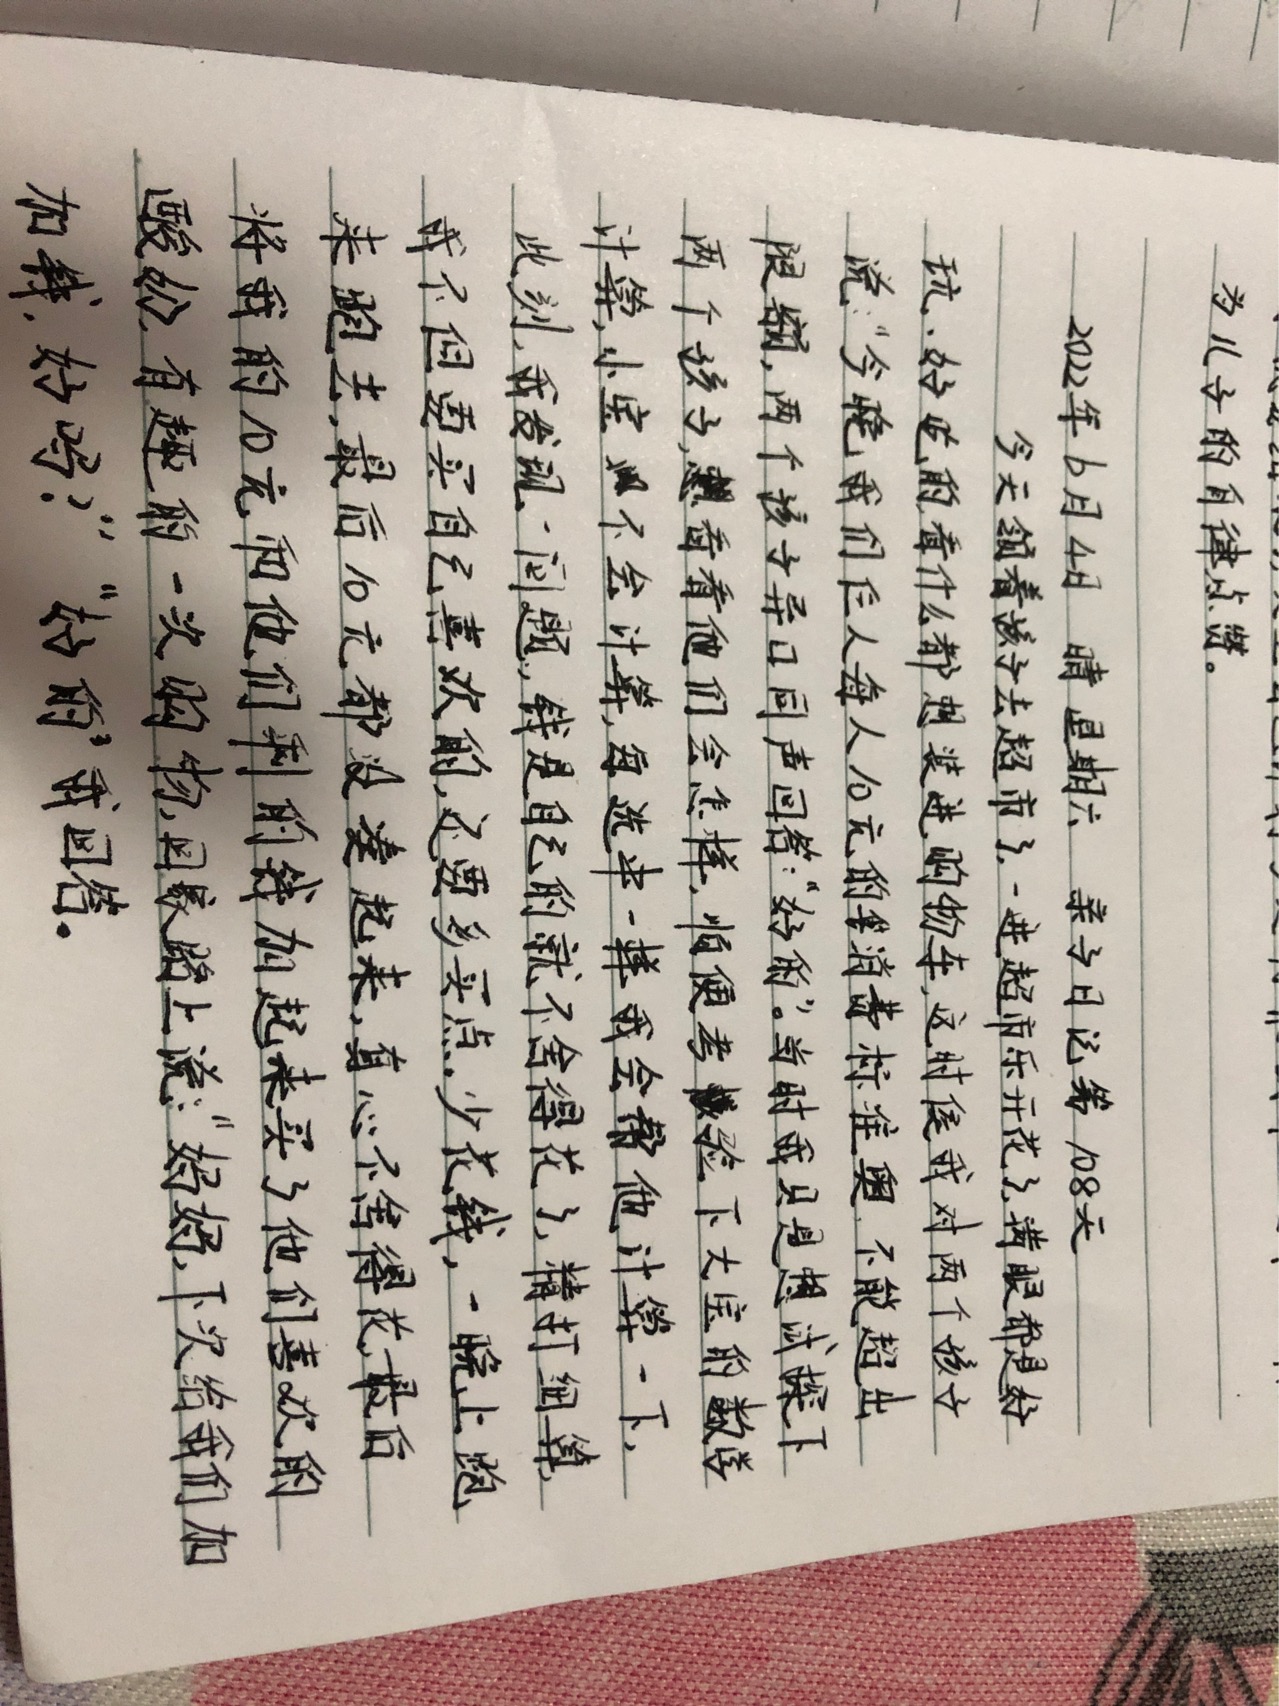 为儿子的自律点赞。
2022年6月4日 晴 星期六 亲子日记第108天
今天领着孩子去超市了，一进超市乐开花了，满眼都是好
玩、好吃的看什么都想装进购物车，这时候我对两个孩子
说：“今晚我们仨人每人10元的消费标准奥，不能超出
限额，两个孩子异口同声回答：“好的”。当时我只是想试探下
两个孩子，想看看他们会怎样，顺便考验下大宝的数学
计算，小宝又不会计算，每选中一样我会帮他计算一下，
此刻，我发现一问题，钱是自己的就不舍得花了，精打细算，
我不但要买自己喜欢的，还要多买点，少花钱，一晚上跑
来跑去，最后10元都没凑起来，真心不舍得花，最后
将我的10元和他们剩的钱加起来买了他们喜欢的
酸奶，有趣的一次购物，回家路上说：“妈妈，下次给我们加
加钱，好吗？”“好的”我回答。